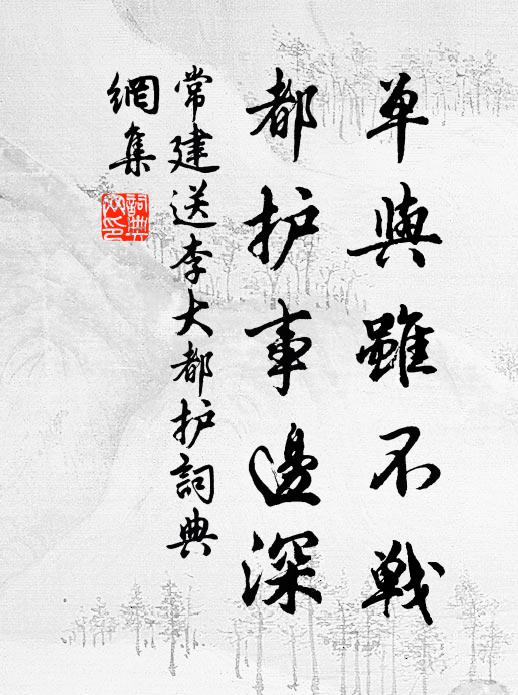 单與雖不戦
都护事邊深
常建送李大都护詞典
網集
詞典
网印